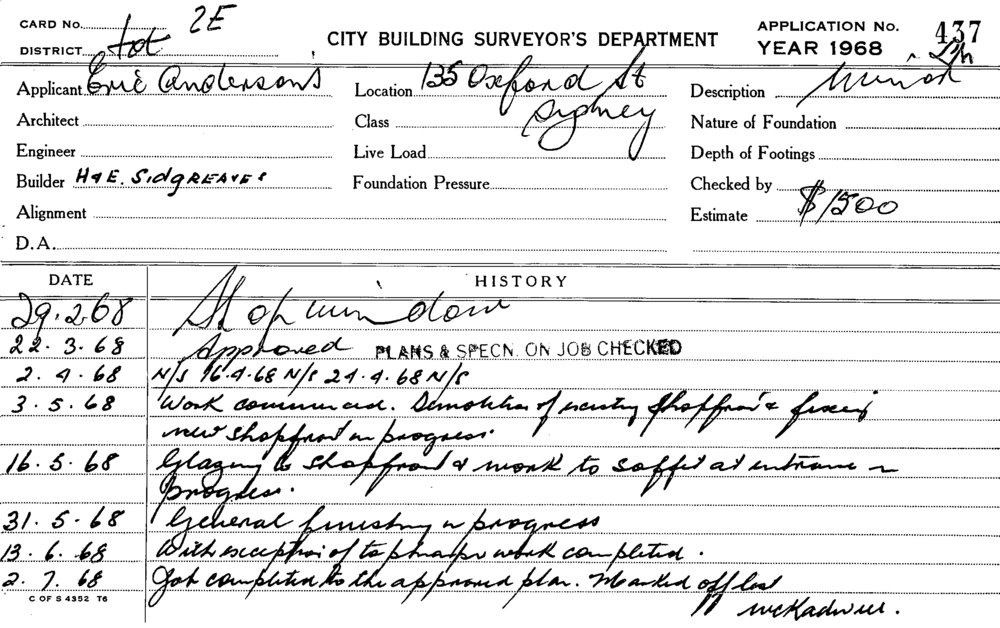 CARD No. 2E
DISTRICT
CITY BUILDING SURVEYOR'S DEPARTMENT
APPLICATION No. 437
YEAR 1968
Applicant Eric Anderson's
Location 135 Oxford St
Sydney
Description Minor
Architect
Class
Nature of Foundation
Engineer
Live Load
Depth of Footings
Builder H & E. SidGREAVES
Foundation Pressure
Checked by
Alignment
Estimate $1500
D.A.
DATE HISTORY
29.2.68 Shop window
22.3.68 Approved PLANS & SPECN. ON JOB CHECKED
2.4.68 N/S 16.4.68 N/S 24.4.68 N/S
3.5.68 Work commenced. Demolition of existing shopfront & fixing
new shopfront in progress.
16.5.68 Glazing to shopfront & work to soffit at entrance in
progress.
31.5.68 General finishing in progress
13.6.68 With exception of work completed.
2.7.68 Job completed to the approved plan. Marked off
C OF S 4352 T6